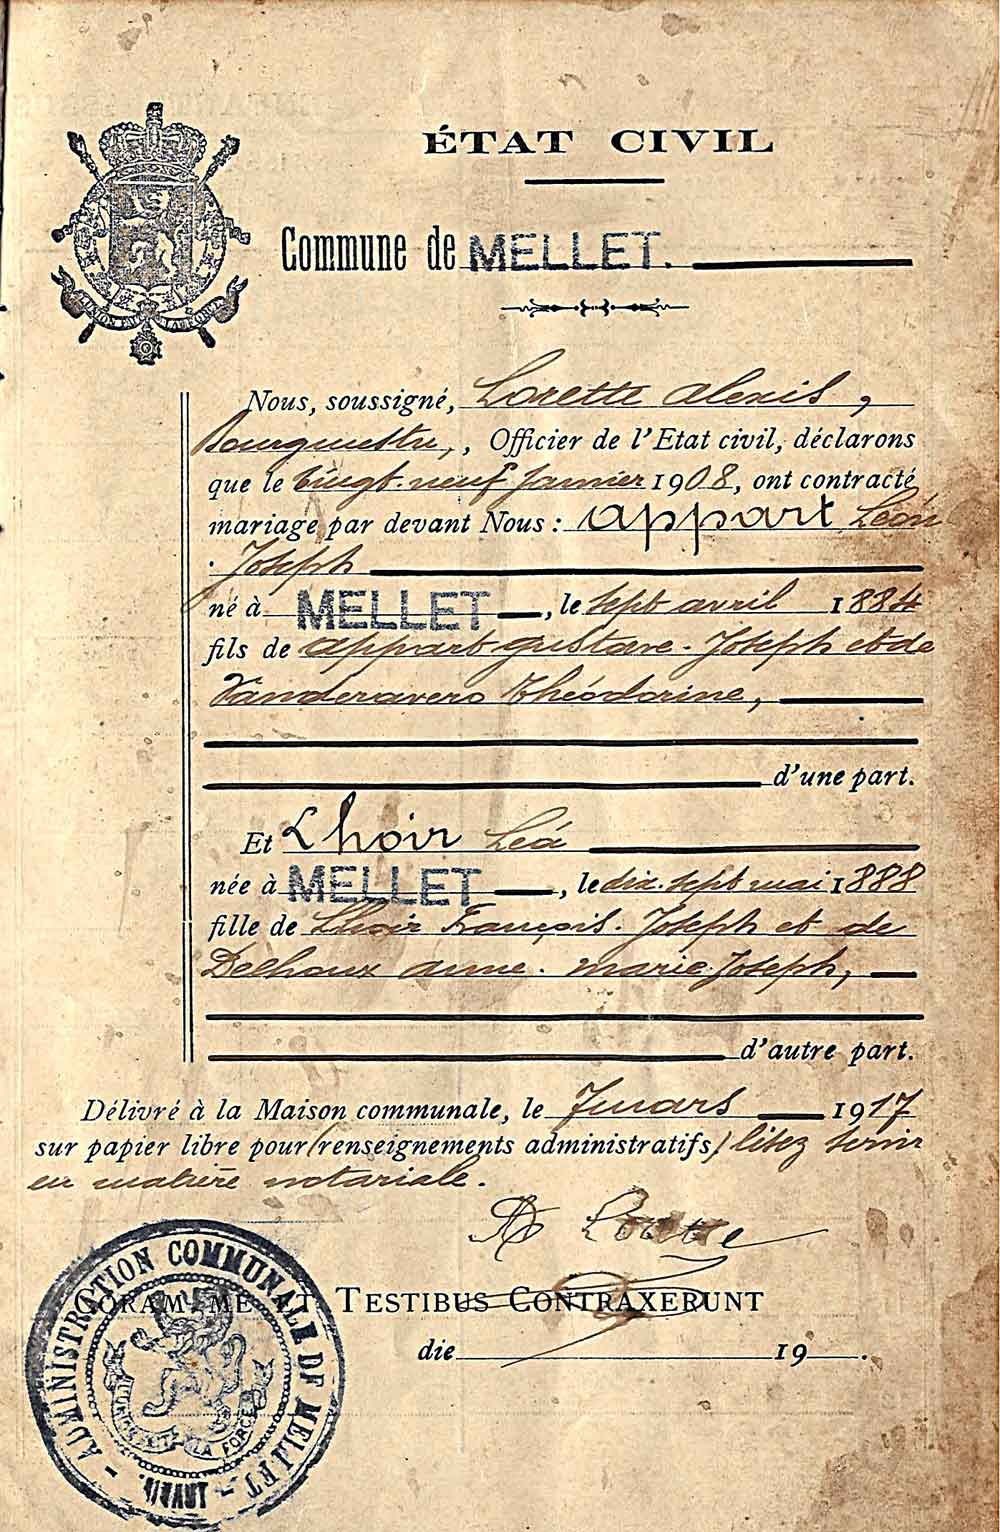 ÉTAT CIVIL
L'UNION FAIT LA FORCE
Commune de MELLET.
Nous, soussigné, Lorette Alexis,
Bourgmestre, Officier de l'Etat civil, déclarons
que le vingt-neuf Janvier 1908, ont contracté
mariage par devant Nous : Appart Léon
Joseph
né à MELLET, le sept avril 1884
fils de Appart Gustave-Joseph et de
Théodorine,
d'une part.
Et Lhoir Léa
née à MELLET, le dix-sept mai 1888
fille de Lhoir François-Joseph et de
Delhaux Anne-Marie-Joseph,
d'autre part.
Délivré à la Maison communale, le 7 mars 1917
sur papier libre pour (renseignements administratifs)
en matière notariale.
A Lorette
CORAM ME ET TESTIBUS CONTRAXERUNT
die 19 .
ADMINISTRATION COMMUNALE DE MELLET
LA FORCE